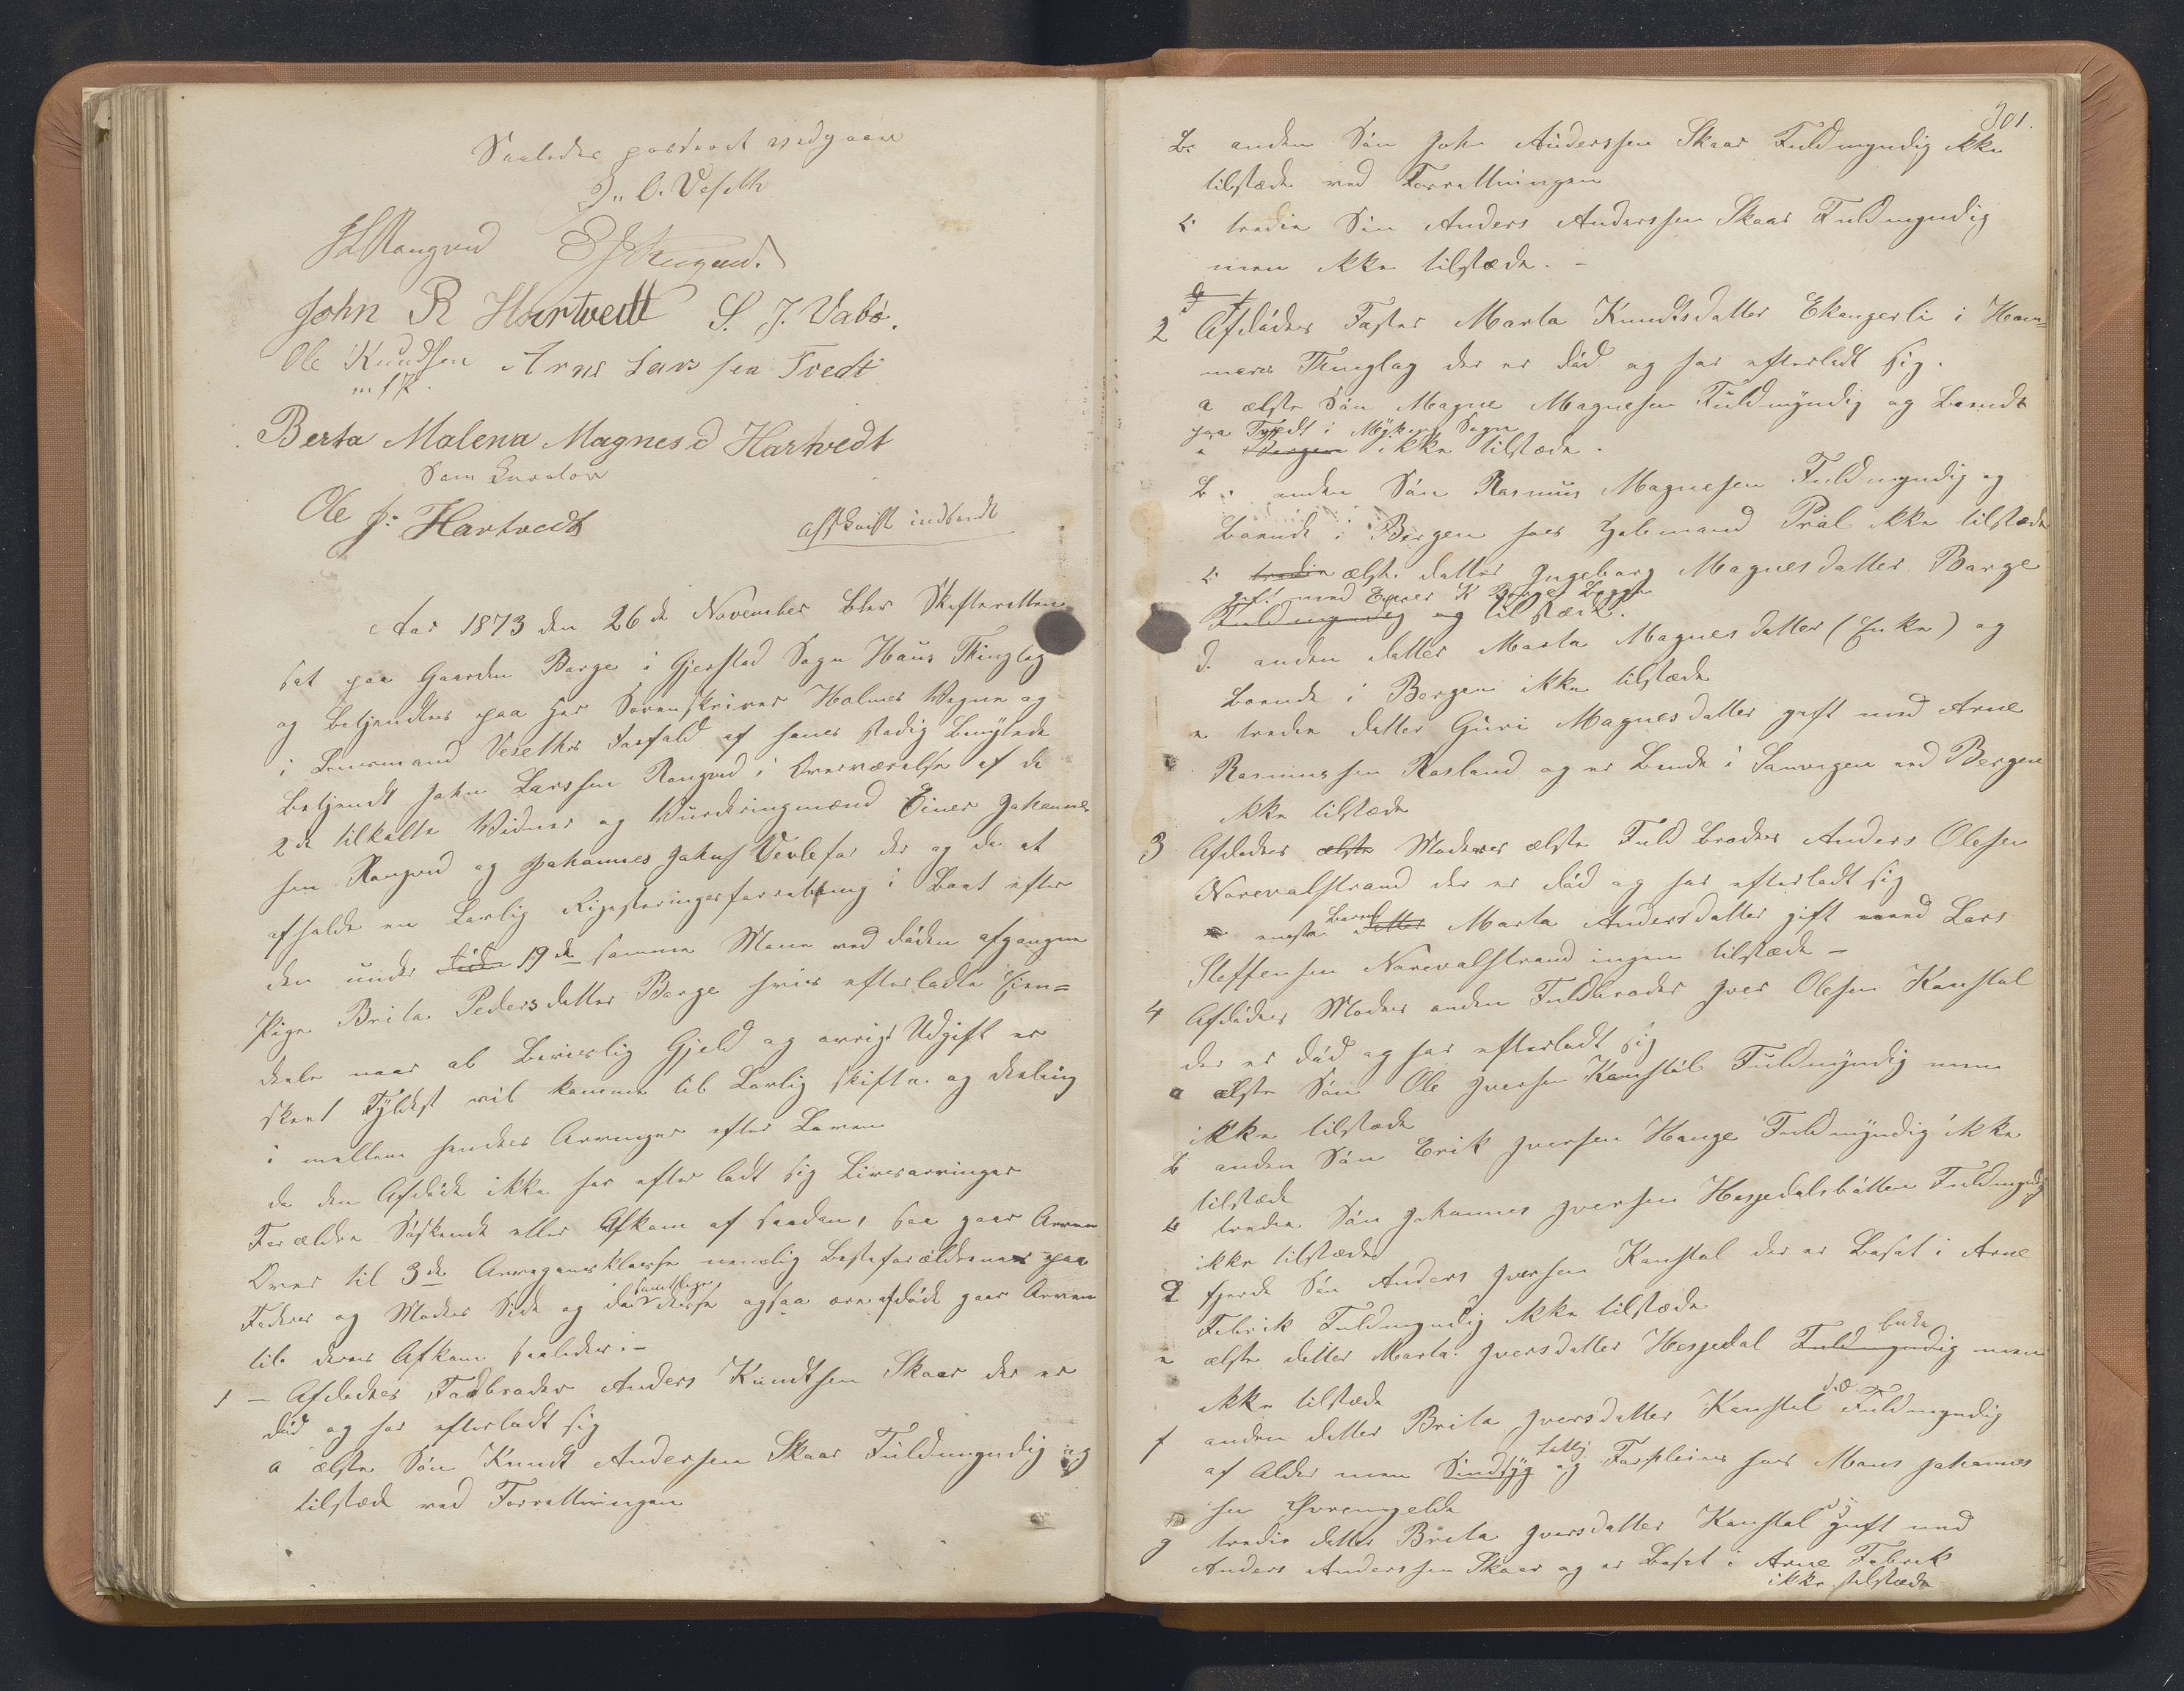 Saaledes passeret vedgaaes
J. C. Veseth
J L Rongved E J Rongved.
John R Hartvedt S. J. Vabø.
Ole Knudsen Arne Larssen Tvedt
m f P.
Berta Malena Magnesd Hartvedt
Som Curator
Ole J: Hartvedt
Afskrift indsendt
Aar 1873 den 26de November blev Skifteretten
sat paa Gaarden Borge i Gjerstad Sogn Haus Thinglag
og betjendtes paa Hr Sorenskriver Holmes Vegne og
i Lensmand Veseths Forfald af hans stadig Benyttede
Betjendt John Larssen Rongved i Overværelse af de
2de tilkalte Vidner og Vurderingsmænd Einer Johannes
sen Rongved og Johannes Jakobs Vevle for der og da at
afholde en Lovlig Rigisteringsforretning i Boet efter
den under 19de samme Maaned ved døden afgangne
Pige Brita Pedersdatter Borge hvis efterladte Eien=
dele naar al Beviislig Gjeld og øvrigt Udgift er
skeet Fyldest vil komme til Lovlig skifte og deeling
i mellem hendes Arvinger efter Loven
da den Afdøde ikke har efter ladt sig Livsarvinger
Forældre Søskende eller Afkom af saadan, saa gaar Arven
Over til 3de Arvegangsklasse nemelig Bestaforældrenes paa
Faders og Moders Side og da samtlige disse ogsaa ere afdøde gaar Arven
til deres Afkom saaledes:-
1 - Afdødes Fadbroder Anders Knudtsen Skaar der er
død og har efterladt sig
a ælste Søn Knudt Andersen Skaar Fuldmyndig og
tilstæde ved Forretningen
301.
b. anden Søn John Anderssen Skaar Fuldmyndig ikke
tilstæde ved Forretningen
c: tredie Søn Anders Anderssen Skaar Fuldmyndig
men ikke tilstæde. -
2 Afdødes Faster Marta Knudtsdatter Ekangerli i Ham=
mers Thinglag der er død og har efterladt sig.
a ælste Søn Magne Magnesen Fuldmyndig og Boende
paa Tvedt i Sogn
Bergen ikke tilstæde.
b: anden Søn Rasmus Magnesen Fuldmyndig og
Boende i Bergen hos ikke tilstæde
c: tredie ælste datter Ingeborg Magnesdatter Borge
gift med
Fuldmyndig og tilstæde.
d. anden datter Marta Magnesdatter (Enke) og
Boende i Bergen ikke tilstæde
e tredie datter Guri Magnesdatter gift med Arne
Rasmussen Rosland og er Boende i Sanvigen ved Bergen
ikke tilstæde
3 Afdødes ælste Moders ælste Fuld Broder Anders Olesen
Norevalstrand der er død og har efterladt sig
a eneste Barn datter Marta Andersdatter gift med Lars
Steffensen Norevalstrand ingen tilstæde -
4 Afdødes Moders anden Fuldbroder Iver Olesen Kanstal
der er død og har efterladt sig
a ælste Søn Ole Iversen Kanstal Fuldmyndig men
ikke tilstæde
b anden Søn Erik Iversen Hauge Fuldmyndig ikke
tilstæde
c tredie Søn Johannes Iversen Hespedalsbotten Fuldmyndig
ikke tilstæde
d fjerde Søn Anders Iversen Kanstal der er Bosat i Arne
Fabrik Fuldmyndig ikke tilstæde
e ælste datter Marta Iversdatter Hespedal Fuldmyndig Enke men
ikke tilstæde
f anden datter Brita Iversdatter Kanstal d.æ. Fuldmyndig
af Alder men Sindsyg og Forpleies hos Mons Johannes
sen
g tredie datter Brita Iversdatter Kanstal d y gift med
Anders Anderssen Skaar og er Bosat i Arne Fabrik
ikke tilstæde